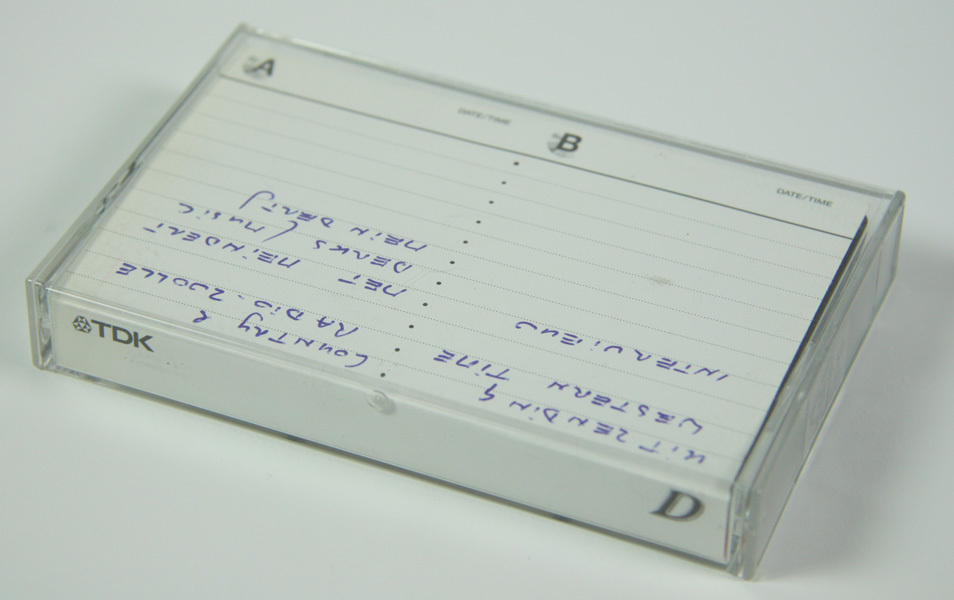 A DATE/TIME
B DATE/TIME
UITZENDING COUNTRY &
WESTERN TIME RADIO. ZWOLLE
INTERVIEW MET MEINDERT
DERKS (MUSIC
MEINDERT)
TDK
D